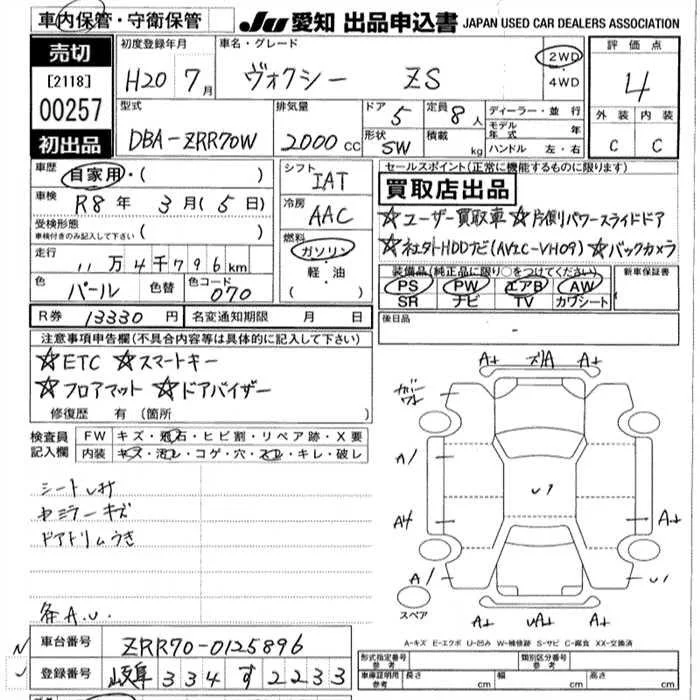 車内保管・守衛保管
JU 愛知 出品申込書 JAPAN USED CAR DEALERS ASSOCIATION
売切
[2118]
00257
初出品
初度登録年月
H20 7月
車名・グレード
ヴォクシー ZS
2WD
4WD
評価点
4
外装 内装
C C
型式
DBA-ZRR70W
排気量
2000 CC
ドア
5
定員
8人
形状
SW
積載
kg
ディーラー・並行
モデル年式 年
ハンドル 左・右
車歴
自家用・( )
車検
R8年 3月(5日)
受検形態
車検付きのみ記入して下さい ( )
走行
11万4千796km
色
パール
色替
色コード
070
シフト
IAT
冷房
AAC
燃料
ガソリン
軽・油
( )
セールスポイント(正常に機能するものに限ります)
買取店出品
☆ユーザー買取車☆片側パワースライドドア
☆社外HDDナビ(AVIC-VH09)☆バックカメラ
装備品(純正品に限り○をつけてください)
新車保証書
PS PW エアB AW
SR ナビ TV カワシート
R券 13330円 名変通知期限 月 日
後日品
-
注意事項申告欄(不具合内容等は具体的に記入して下さい)
☆ETC ☆スマートキー
☆フロアマット ☆ドアバイザー
修復歴 有 (箇所 )
検査員
記入欄
FW キズ・飛石・ヒビ割・リペア跡・X要
内装 キズ・汚レ・コゲ・穴・スレ・キレ・破レ
ドアトリムうき
各A.U.
A+ A+
A1
U1
A4 A+
A1 U1
スペア
A+ UA+ A+
A-キズ E-エクボ U-凹み W-補修跡 S-サビ C-腐食 XX-交換済
車台番号 ZRR70-0125896
登録番号 岐阜 334 す 2233
形式指定番号
参考
類別区分番号
参考
車庫証明用
参考
長さ cm 幅 cm 高さ cm